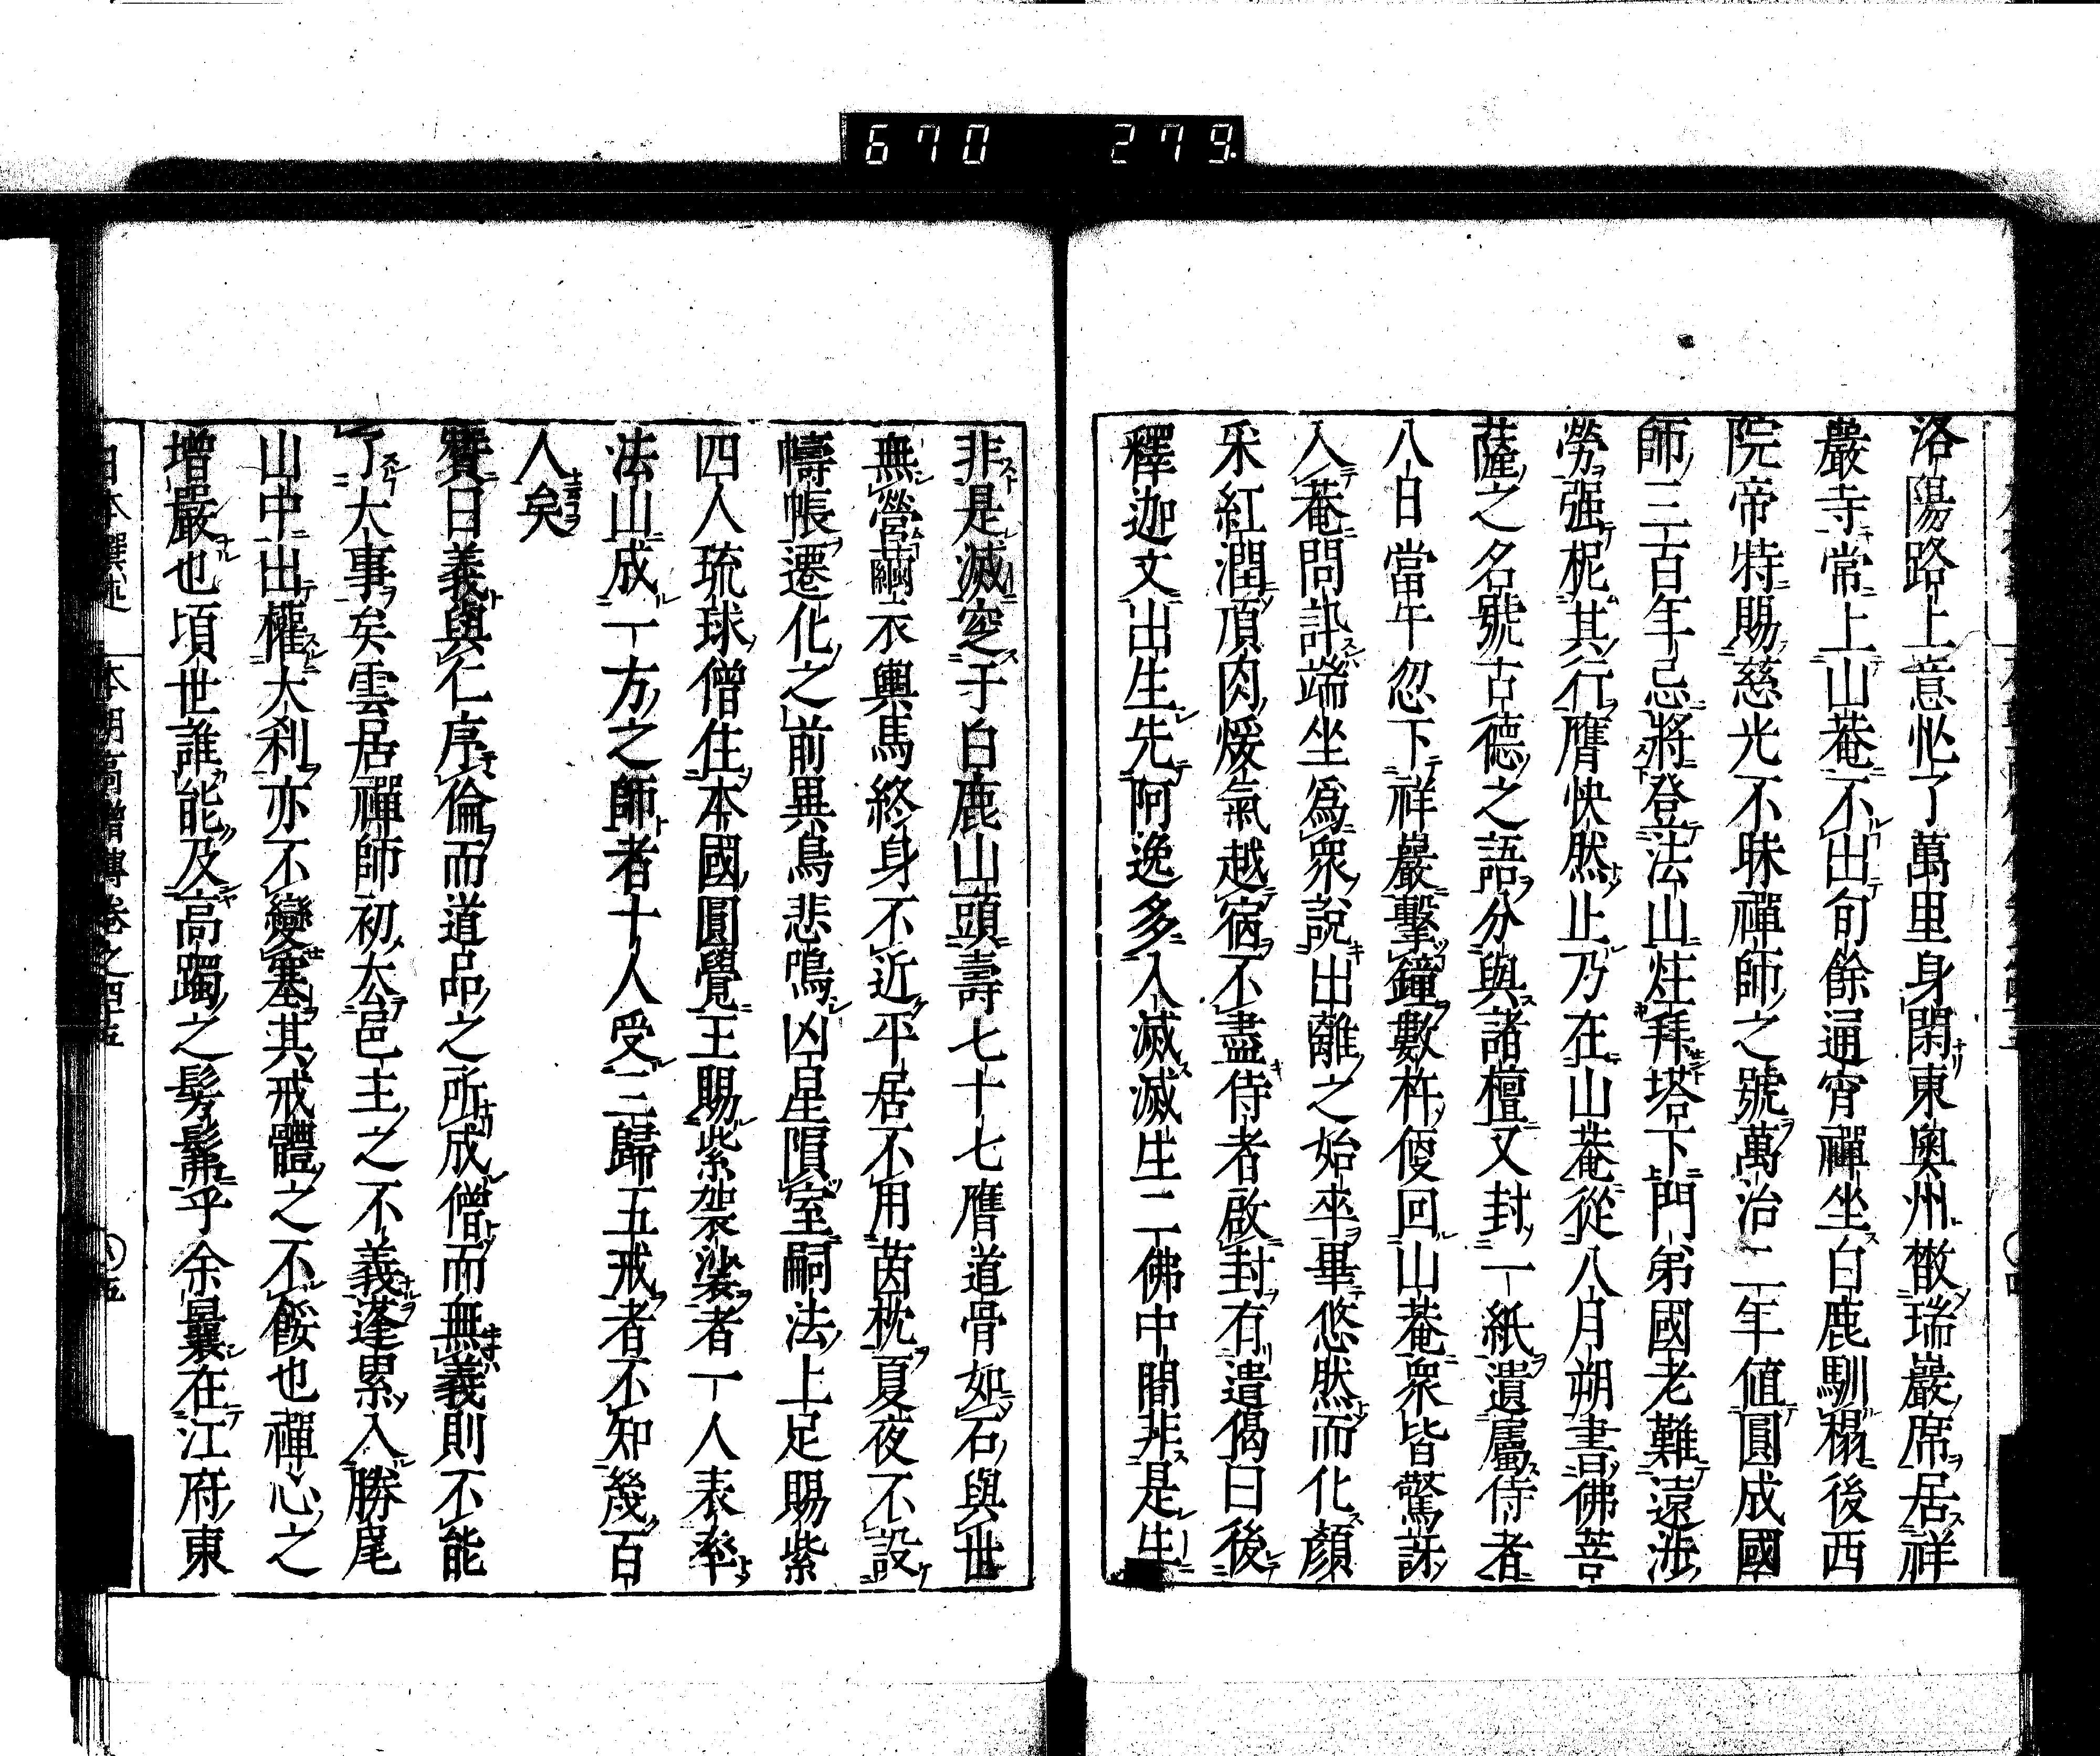 670 279
洛陽路上意忙了萬里身閑東奧州撤瑞巖席居祥
巖寺常上山菴不出旬餘通宵禪坐白鹿馴榻後西
院帝特賜慈光不昧禪師之號萬治二年值圓成國
師三百年忌將登法山炷拜塔下門弟國老難遠涉
勞强柅其行膺快然止乃在山菴從八月朔書佛菩
薩之名號古德之語分與諸檀又封一紙遺屬侍者
八日當午忽下祥巖擊鐘數杵便回山菴眾皆驚訝
入菴問訊端坐為衆說出離之始卒畢悠然而化顏
釆紅潤頂肉煖氣越宿不盡侍者啟封有遺偈曰後
釋迦文出生先阿逸多入滅滅生二佛中間非是生
非是滅窆于白鹿山頭壽七十七膺道骨如石與世
無營繭衣輿馬終身不近平居不用茵枕夏夜不設
幬帳遷化之前異鳥悲鳴凶星隕室嗣法上足賜紫
四人琉球僧住本國圓覺王賜紫袈裟者一人表率
法山成一方之師者十人受三歸五戒者不知幾百
人矣
贊曰義與仁序倫而道品之所成僧而無義則不能
了大事矣雲居禪師初去邑主之不義蓬累入勝尾
山中出權大刹亦不變塞其戒體之不餒也禪心之
增嚴也頃世誰能及高躅之髣髴乎余曩在江府東
日本撰述 本朝高僧傳卷之四十五 五